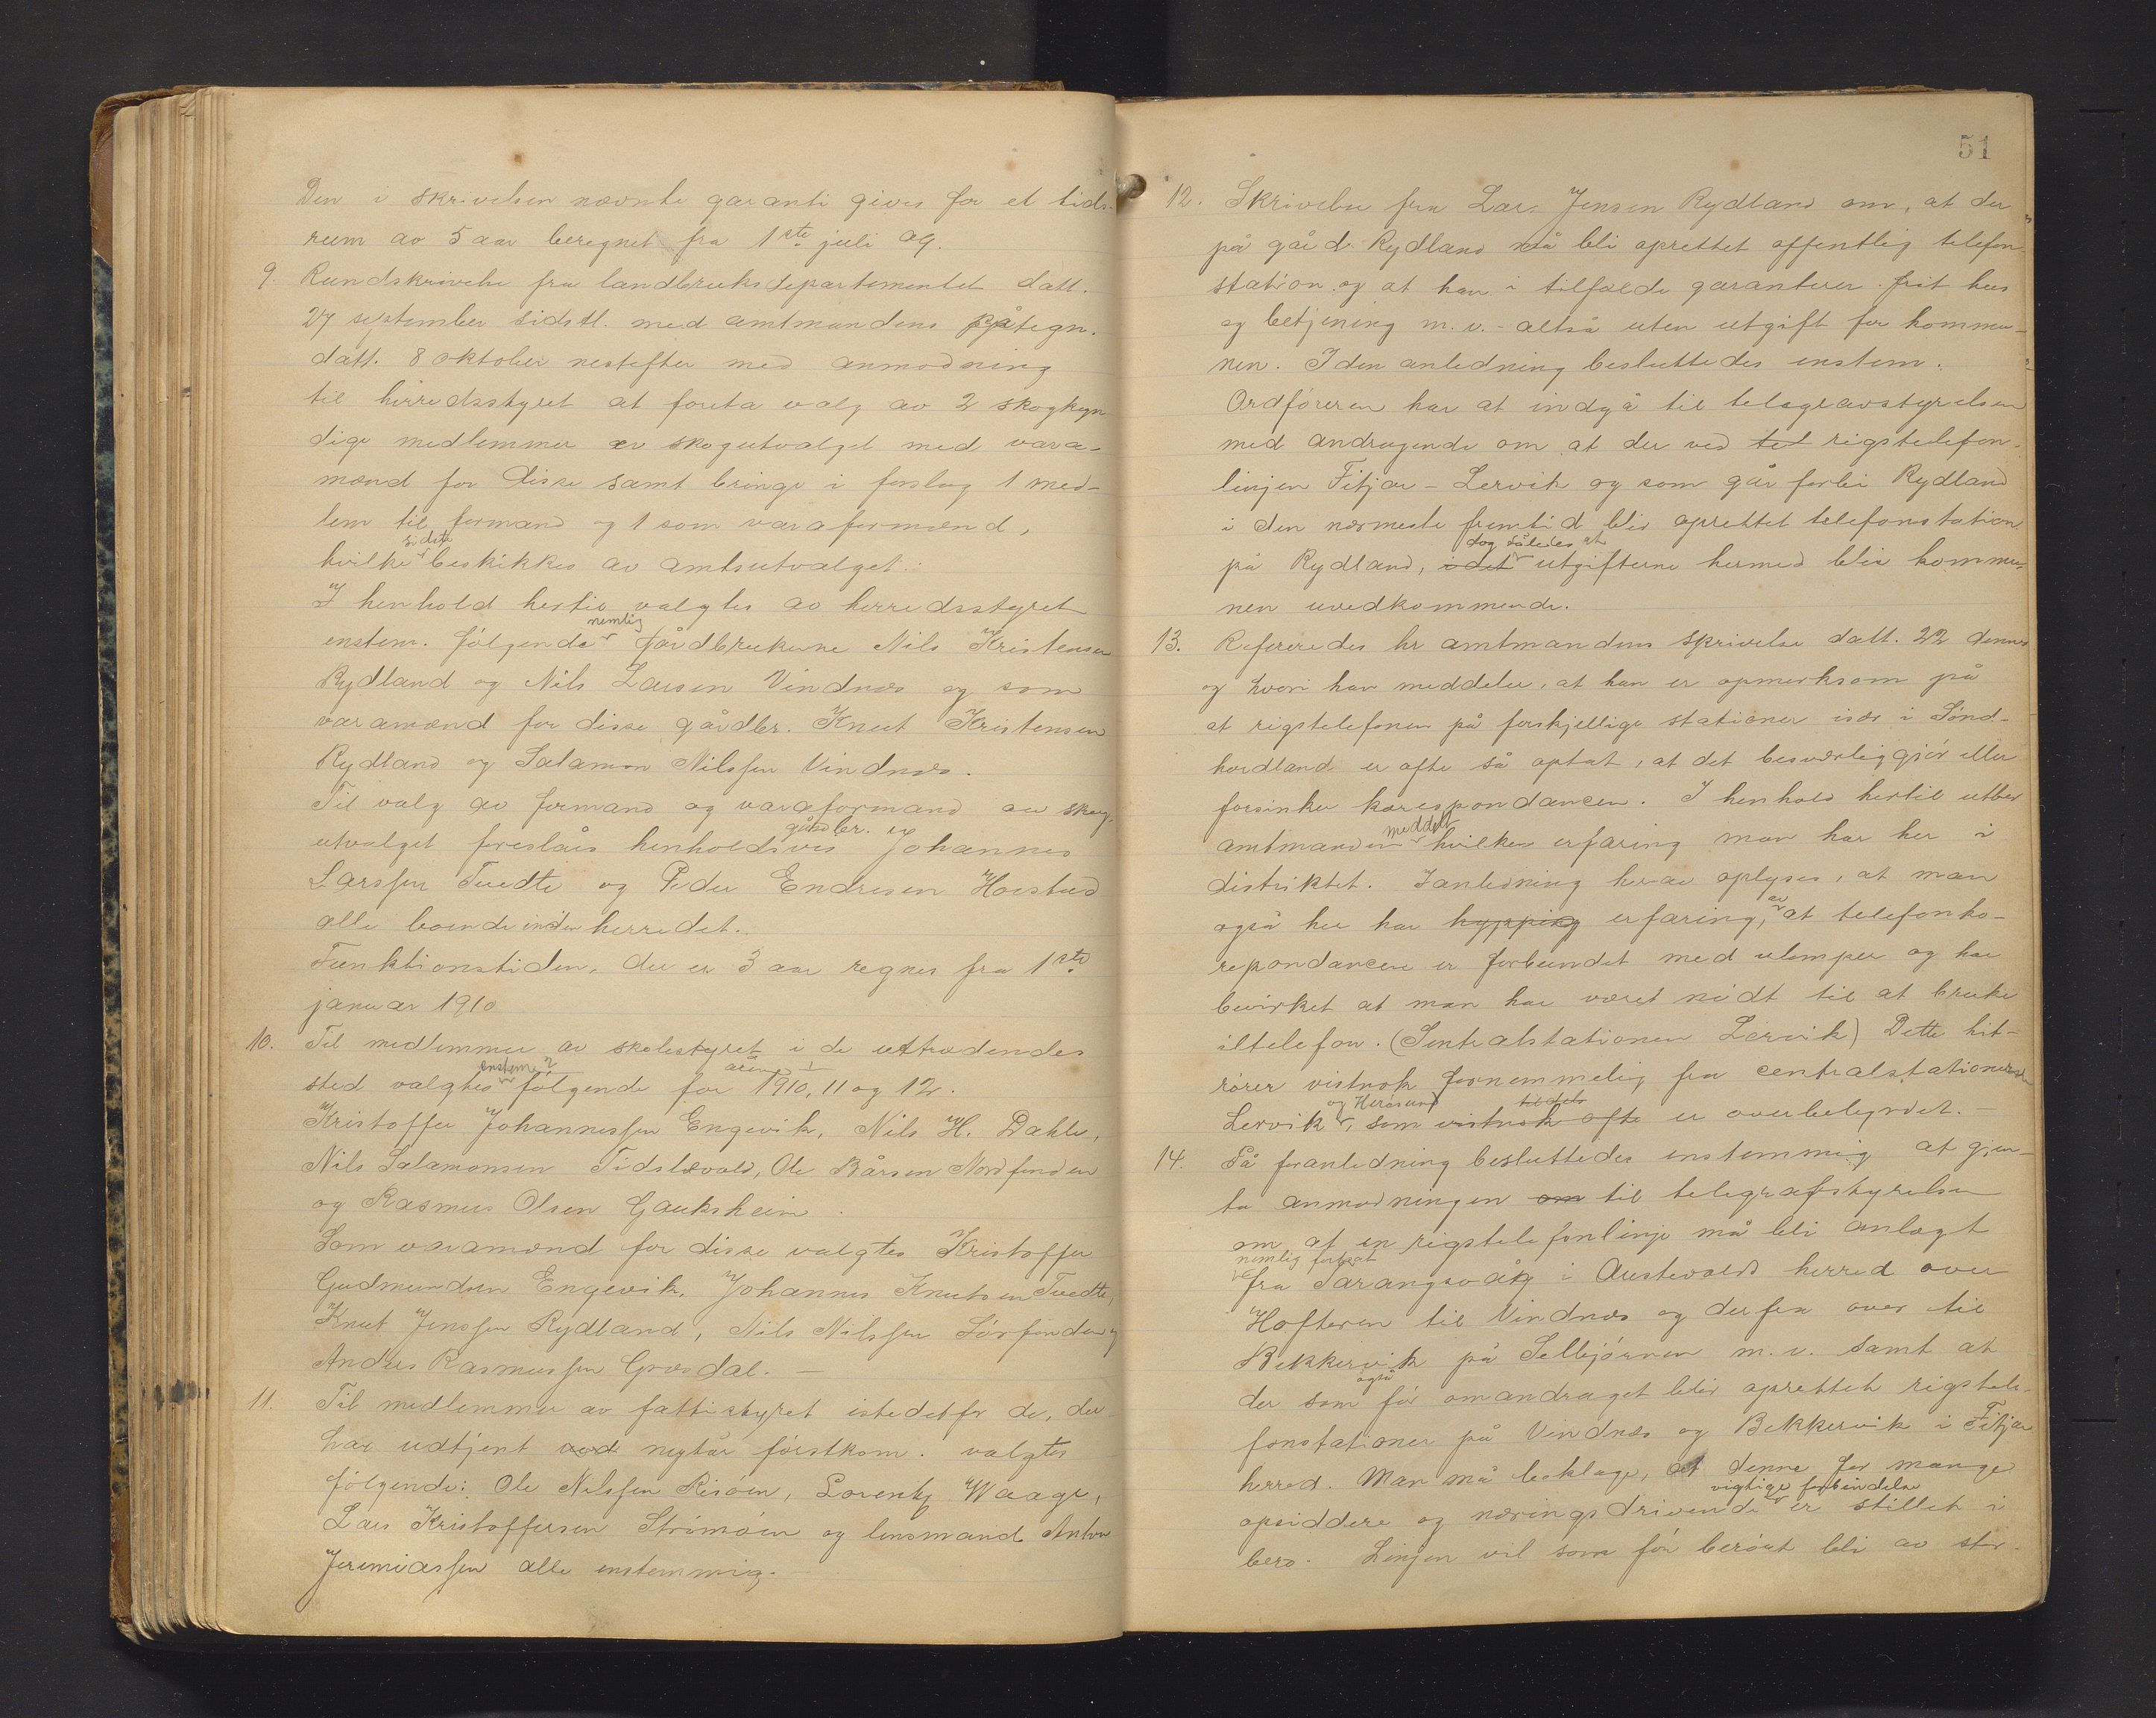 Den i skrivelsen nævnte garanti gives for et tids-
rum av 5 aar beregnet fra 1ste juli 09.
9. Rundskrivelse fra landbruksdepartementet datt.
27 september sidstl. med amtmandens påtegn.
datt. 8 oktober nestefter med anmodning
til herredsstyret at foreta valg av 2 skogkyn
dige medlemmer av skogutvalget med vara-
mænd for disse samt bringe i forslag 1 med-
lem til formand og 1 som varaformænd,
sidste
hvilke beskikkes av amtsutvalget.:
I henhold hertil valgtes av herredsstyret
nemlig
enstem. følgende gårdbrukerne Nils Kristensen
Rydland og Nils Larsen Vindnes og som
varamænd for disse gårdbr. Knut Kristensen
Rydland og Salamon Nilssen Vindnes.
Til valg av formand og varaformand av skog-
gårdbr.
utvalget foreslåes henholdsvis Johannes
Larssen Tvedte og Peder Endresen Havstad
alle boende inden herredet.
Funktionstiden, der er 3 aar regnes fra 1ste
januar 1910
10. Til medlemmer av skolestyret i de uttrædendes
enstem. årene
sted valgtes følgende for 1910, 11 og 12.
Kristoffer Johannessen Engevik, Nils H. Dahle,
Nils Salamonsen Tidslevold, Ole Bårsen Nordfonden
og Rasmus Olsen Gauksheim.
Som varamænd for disse valgtes Kristoffer
Gudmundsen Engevik, Johannes Knutsen Tvedte,
Knut Jenssen Rydland, Nils Nilssen Sørfonden og
Anders Rasmussen Græsdal.
11. Til medlemmer av fattistyret istedetfor de, der
har udtjent ved nytår førstkom. valgtes
følgende: Ole Nilssen Risøen, Lorentz Waage,
Lars Kristoffersen Strømøen og lensmand Anton
Jeremiassen alle enstemmig.
51
12. Skrivelse fra Lars Jensen Rydland om, at der
på gård Rydland må bli oprettet offentlig telefon
station og at han i tilfælde garanterer frit hus
og betjening m. v. - altså uten utgift for kommu-
nen. I den anledning besluttedes enstem.
Ordføreren har at indgå til telegravstyrelsen
med andragende om at der ved tel rigstelefon-
linjen Fitjar - Lervik og som går forbi Rydland
i den nærmeste fremtid blir oprettet telefonstation
dog således at
på Rydland, idet utgifterne hermed blir kommu-
nen uvedkommende.
13. Refereredes hr amtmandens skrivelse datt. 22 dennes
og hvori han meddeler, at han er opmerksom på
at rigstelefonen på forskjellige stationer især i Sønd-
hordland er ofte så optat, at det besværliggjør eller
forsinker korespondancen. I henhold hertil utber
meddelt
amtmanden hvilken erfaring man har her i
distriktet. I anledning herav oplyses, at man
av
også her har hyppig erfaring, at telefonko-
repondancen er forbundet med ulemper og har
bevirket at man har været nødt til at bruke
iltelefon. (Sentralstationen Lervik) Dette hit-
rører vistnok fornemmelig fra centralstationerne
og Herøsund tildels
Lervik, som vistnok ofte er overbebyrdet. -
14. På foranledning besluttedes enstemmig at gjen-
ta anmodningen om til telegrafstyrelsen
om at en rigstelefonlinje må bli anlagt
nemlig fortsat
fra Tarangsvåg i Austevolds herred over
Hofteren til Vindnes og derfra over til
Bekkervik på Selbjørnen m. v. samt at
også
der som før omandraget blir oprettet rigstele-
fonstationer på Vindnes og Bekkervik i Fitjar
herred. Man må beklage, at denne for mange
vigtige forbindelse
opsiddere og næringsdrivende er stillet i
bero. Linjen vil som før berørt bli av stor